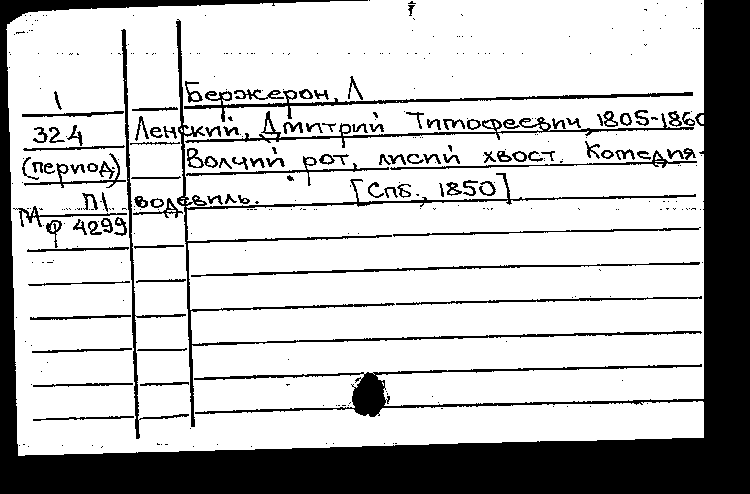 1 Бержерон, Л
324 Ленский, Дмитрий Тимофеевич, 1805-1860
(период) Волчий рот, лисий хвост. Комедия-
П1 водевиль. [Спб., 1850]
Мф 4299